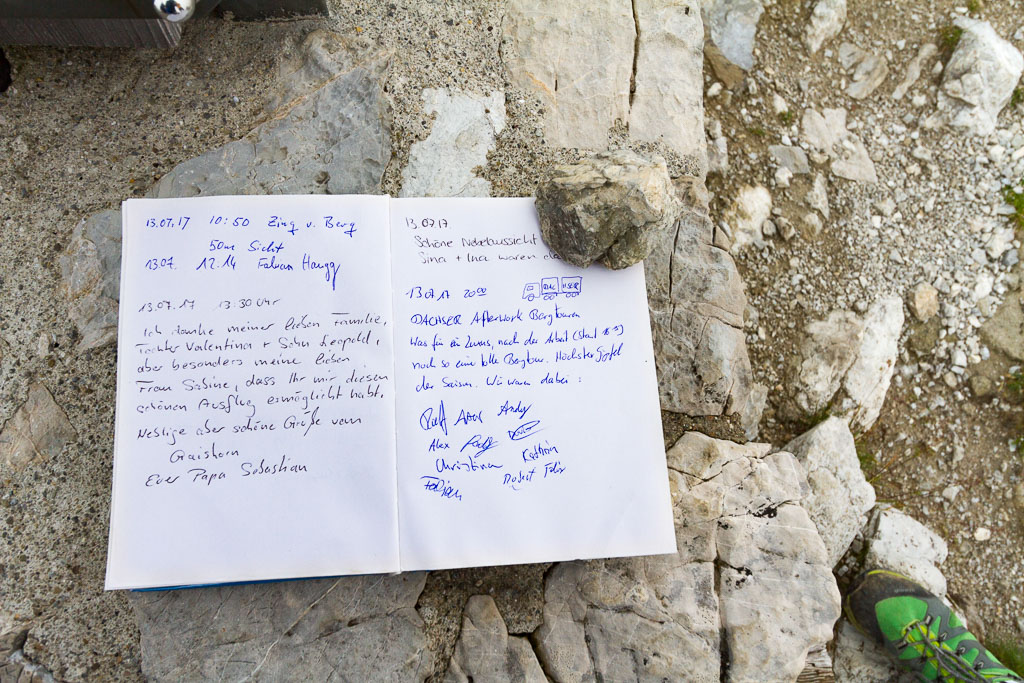 13.07.17 10:50 Zinq v. Berg
50m Sicht
13.07. 12.14 Fabian Haugg
13.07.17 13:30 Uhr
Ich danke meiner lieben Familie,
Tochter Valentina + Sohn Leopold,
aber besonders meine lieben
Frau Sabine, dass Ihr mir diesen
schönen Ausflug ermöglicht habt.
Neblige aber schöne Grüße vom
Gaishorn
Euer Papa Sebastian
13.07.17.
Schöne Nebelaussicht
Sina + Ina waren da
13.07.17 20:00
DACHSER Afterwork Bergtouren
Was für ein Luxus, nach der Arbeit (Start
noch so eine tolle Bergtour. Höchster Gipfel
der Saison. Wir waren dabei :
Andy
Alex
Christina Kathrin
Fabian Robert Felix